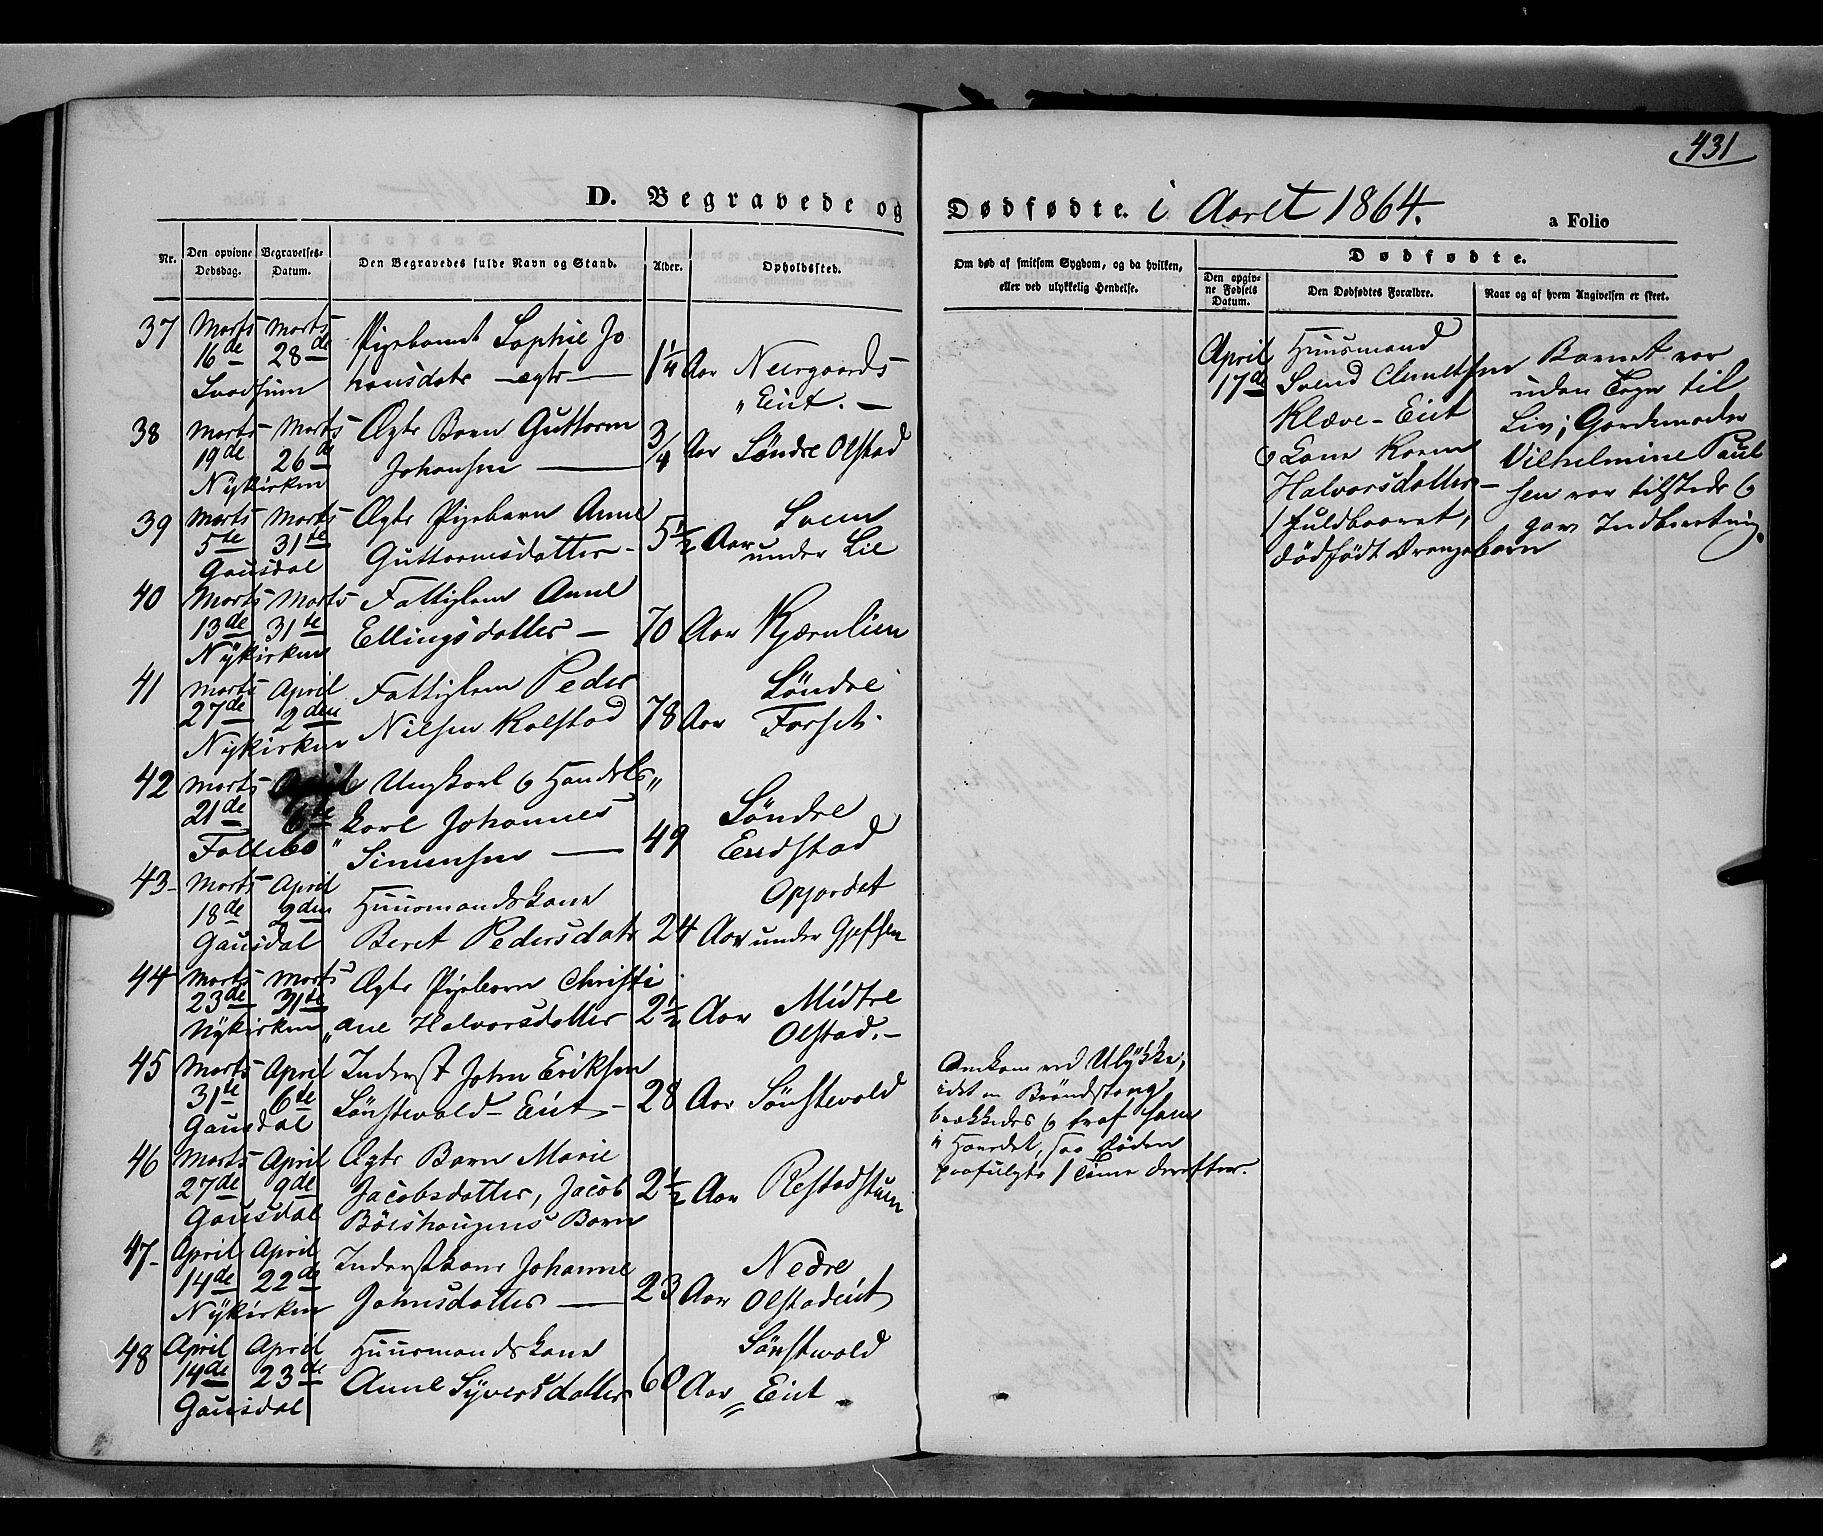 431
D. Begravede og Dødfødte. i Aaret 1864.
a Folio
Nr.
Den opgivne Dødsdag.
Begravelses-Datum.
Den Begravedes fulde Navn og Stand.
Alder.
Opholdssted.
Om død af smitsom Sygdom, og da hvilken,
eller ved ulykkelig Hendelse.
Dødfødte.
Den opgiv-
ne Fødsels
Datum.
Den Dødfødtes Forældre.
Naar og af hvem Angivelsen er skeet.
37 Marts Marts Pigebarnet Sophie Jo
16de 28de hansdatr ægte 1 1/4 Aar Neergaards
Eiet.
38 Marts Marts Ægte Barn Guttorm
19de 26de Johansen 3/4 Aar Søndre Olstad
Nykirken
39 Marts Marts Ægte Pigebarn Anne
5te 31te Guttormsdatter 5 1/2 Aar Sveen
Gausdal under Lie
40 Marts Marts Fattiglem Anne
13de 31te Ellingsdatter 70 Aar Kjærnlien
Nykirken
41 Marts April Fattiglem Peder
27de 2den Nilsen Kolstad 78 Aar Søndre
Nykirken Forset
42 Marts April Ungkarl & Handels
21de 6te karl Johannes Søndre
Follebo Simensen 49 Endstad
43 Marts April Huusmandskone
18de 2den Beret Pedersdatr 24 Aar Opjordet
Gausdal under Gjefsen
44 Marts Marts Ægte Pigebarn Christi
23de 31te ane Halvorsdatter 2 1/2 Aar Midtre
Nykirken Olstad.
45 Marts April Inderst John Eriksen
31te 6te Sønstevold-Eiet 28 Aar Sønstevold
Gausdal
Omkom ved Ulykke,
idet en Brøndstang
brækkedes & traf ham
i Hovedet, saa Døden
paafulgte 1 Time derefter.
46 Marts April Ægte Barn Marie
27de 9de Jacobsdatter, Jacob 2 1/2 Aar
Gausdal Børshaugens Barn
47 April April Inderstkone Johanne
14de 22de Johnsdatter 23 Aar Nedre
Nykirken Olstadeiet
48 April April Huusmandskone Sønstevold
14de 23de Anne Syversdatter 60 Aar Eiet
Gausdal
April Huusmand
17de Svend Clemetsen
Klæve-Eiet
& Kone Karen
Halvorsdatters
1 fuldbaaret,
dødfødt Drengebarn
Barnet var
uden Tegn til
Liv; Gjordemoder
Vilhelmine Paul
sen var tilstede &
gav Indberetning.